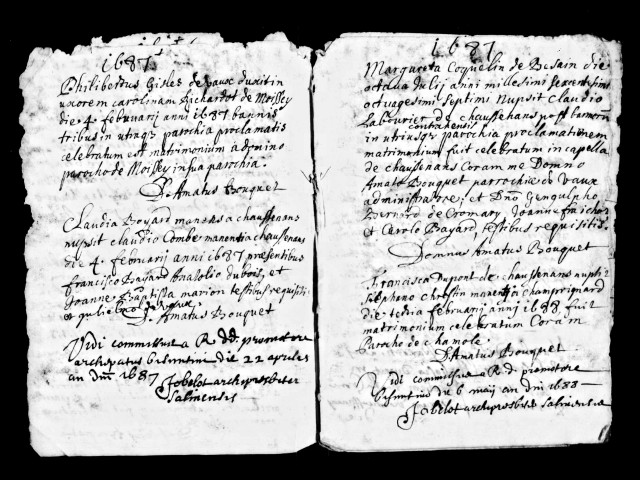 1687
Philibertus Gisles de vaux duxit in
uxorem carolinam Richardot de Moissey
die 4. februarij anni 1687 bannis
tribus in utraq parochia proclamatis
celebratum est matrimonium à domino
parocho de Moissey in sua parochia.
D. Amatus Bouquet
Claudia Boyard manens a chaussenans
nupsit claudio Combe manenti a chaussenans
die 4. februarij anni 1687 præsentibus
francisco Bayard Anatolio dubois, et
Joanne Baptista marion testibus requisitis
et
D. Amatus Bouquet
Vidi commissus a R. dd. promotore
archiepatus bisuntini die 22 aprilis
an dni 1687
Jobelot archipresbiter
salinensis
1687
Margareta Coquelin de Besain die
octava Julij anni millesimi sexcentesimi
octuagesimi septimi nupsit Claudio
Labourier de chaussenans post bannorum
contrahentis
in utriusq parochia proclamationem
matrimonium fuit celebratum in capella
de chaussenans Coram me Domno
Amato Bouquet parrochiæ de Vaux
administratore, et Dno Gengulpho
Bernard de Cromary Joanne
et Carolo Bayard, testibus requisitis.
Domnus Amatus Bouquet
Francisca Dupont de chaussenans nupsit
Stephano Chrestin manenti a champrignard
die tertia februarij anni 1688 fuit
matrimonium celebratum Coram
Parocho de chamole.
D. Amatus Bouquet
Vidi commissus a R. d. promotore
bisuntino die 6 maij an dni 1688
Jobelot archipresbiter salinensis